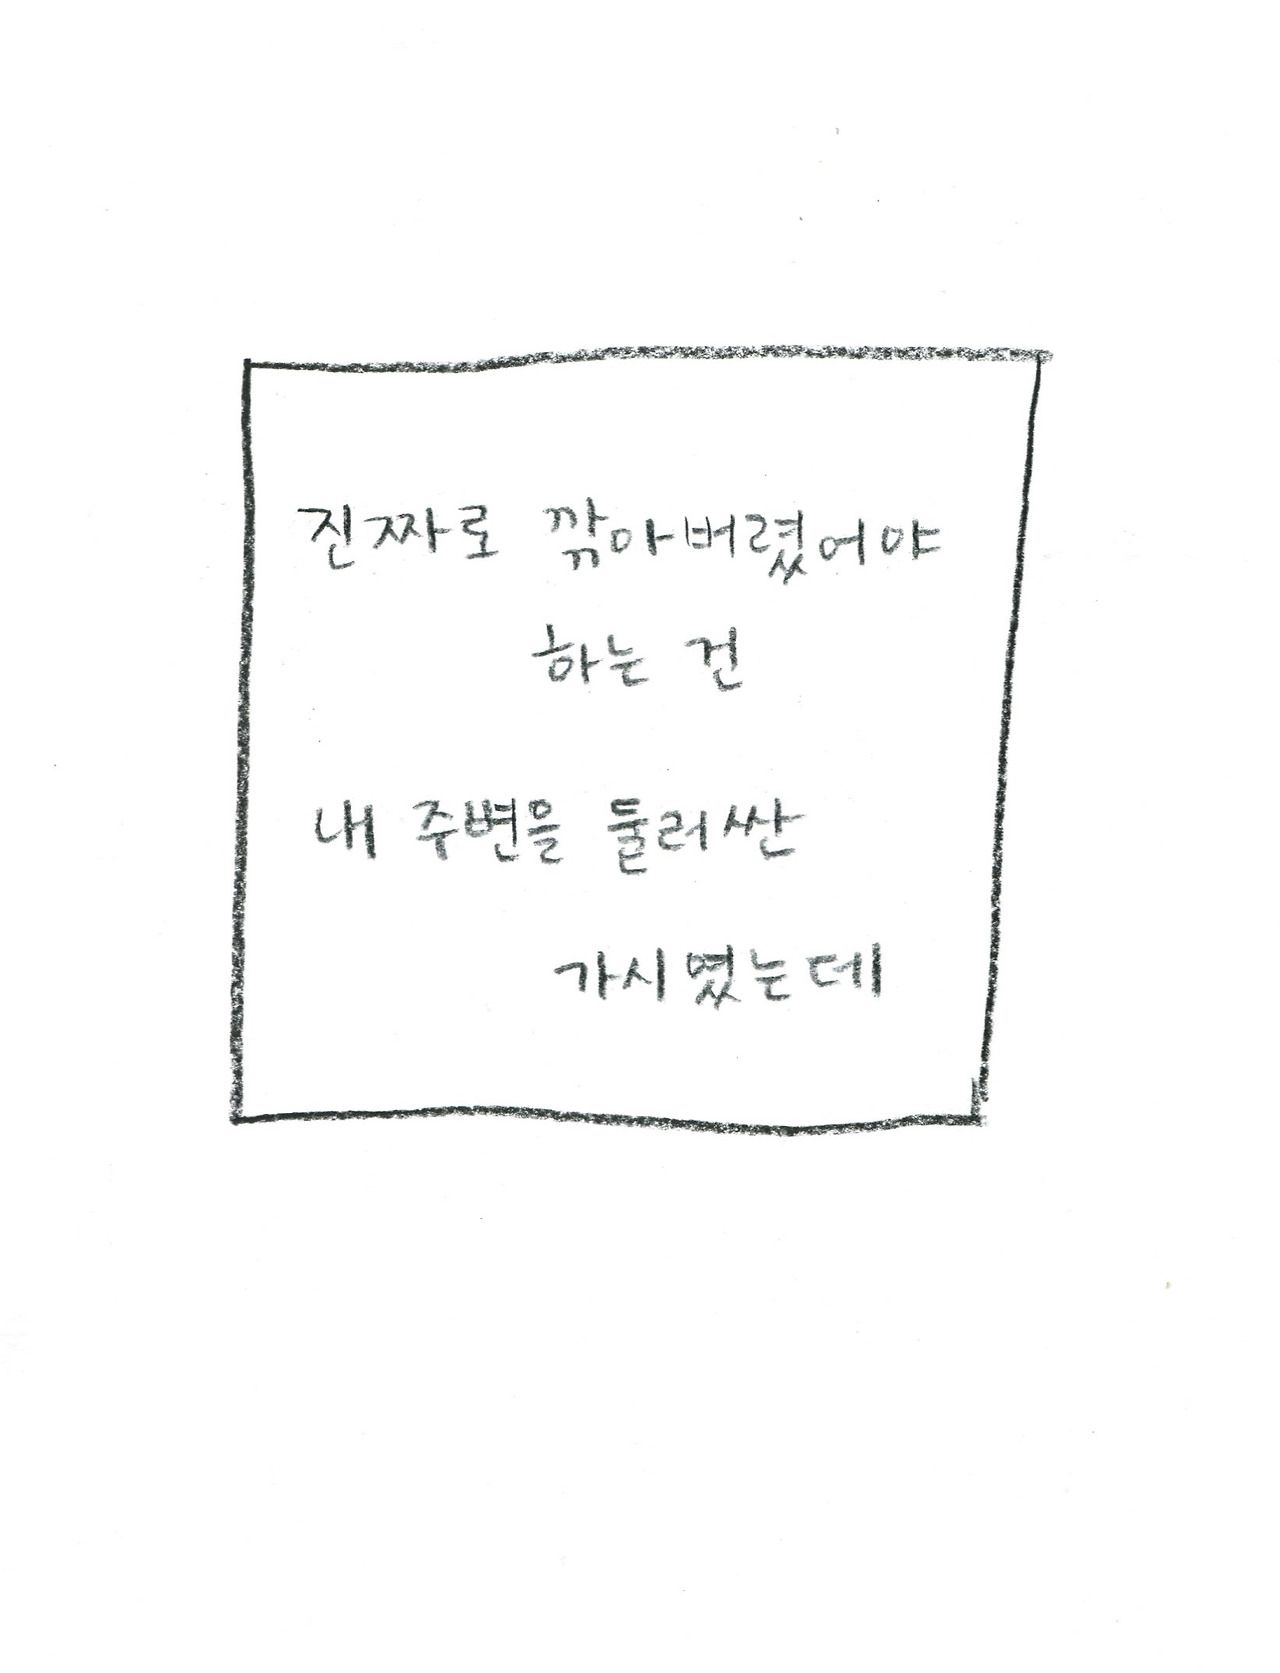 진짜로 깎아버렸어야
하는 건
내 주변을 둘러싼
가시였는데